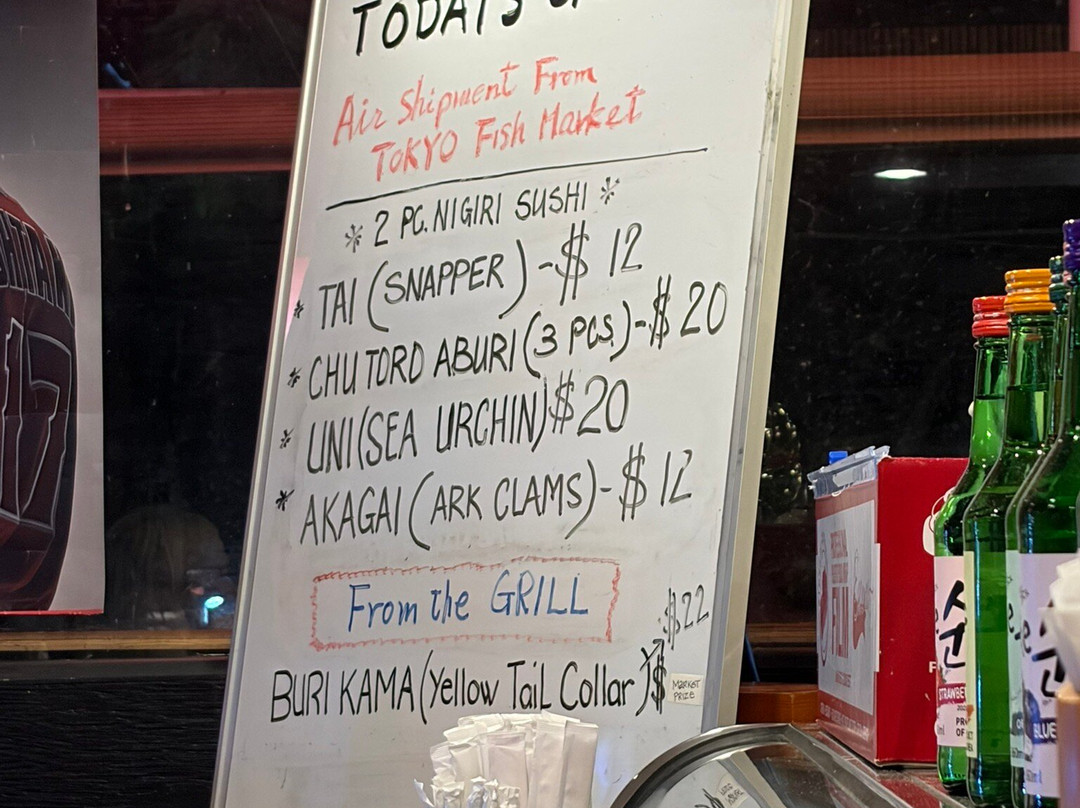 TODAY'S
Air Shipment From
TOKYO Fish Market
* 2 PC. NIGIRI SUSHI *
* TAI (SNAPPER) - $ 12
* CHU TORO ABURI (3 PCS.) - $ 20
* UNI (SEA URCHIN) $ 20
* AKAGAI (ARK CLAMS) - $ 12
From the GRILL
$22
BURI KAMA (Yellow Tail Collar) $
MARKET
PRIZE
17
FILM
순
STRAWBE
BLUE